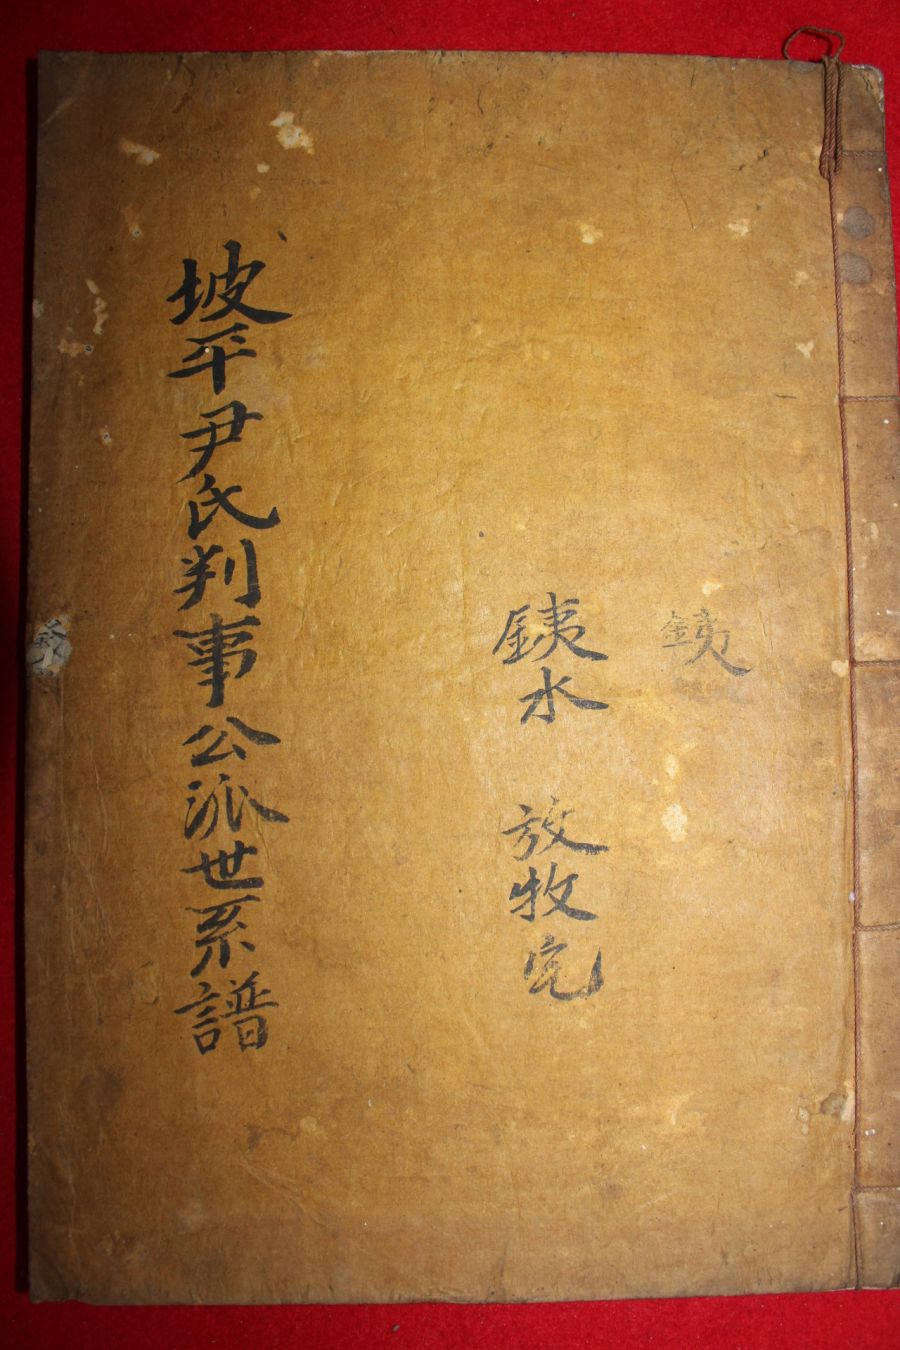 銕
銕水 放牧宅
坡平尹氏判事公派世系譜